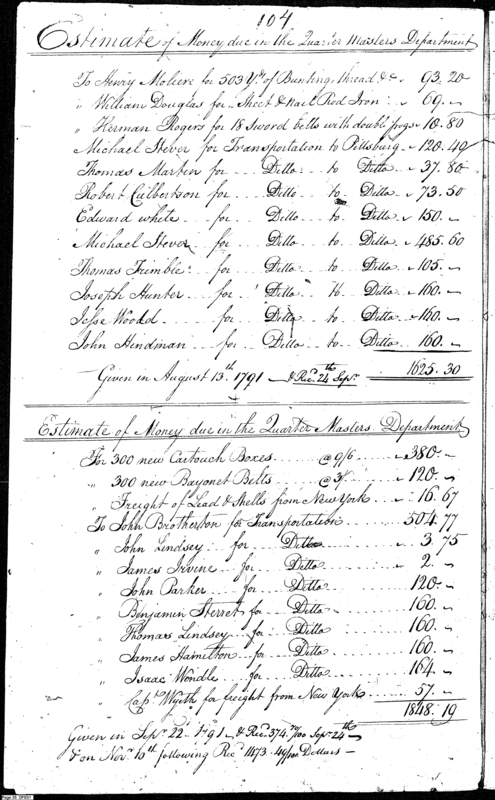 104
Estimate of Money due in the Quarter Masters Department
To Henry Moliere for 503 Yds of Bunting, thread &c 93.20
" William Douglas for Sheet & nail Rod Iron 69.
" Herman Rogers for 18 Sword belts with double frogs 10.80
Michael Stever for Transportation to Pittsburg 120.40
Thomas Martin for Ditto to Ditto 37.80
Robert Culbertson for Ditto to Ditto 73.50
Edward white for Ditto to Ditto 150.
Michael Stever for Ditto to Ditto 485.60
Thomas Trimble for Ditto to Ditto 105.
Joseph Hunter for Ditto to Ditto 160.
Jesse Woodd for Ditto to Ditto 160.
John Hindman for Ditto to Ditto 160.
1625.30
Given in August 13th 1791 & Recd 24th Sepr
Estimate of Money due in the Quarter Masters Department
For 300 new Cartouch Boxes @ 9/6 380
" 300 new Bayonet Belts @ 3/ 120
" Freight of Lead & Shells from New York 16.67
To John Brotherton for Transportation 504.77
" John Lindsey for Ditto 3.75
" James Irvine for Ditto 2.
" John Parker for Ditto 120
" Benjamin Sterret for Ditto 160.
" Thomas Lindsey for Ditto 160.
" James Hamilton for Ditto 160.
" Isaac Wondle for Ditto 164
" Capt Wyeth for freight from New York 57.
1848.19
Given in Sepr 22 1791 & Recd 374.70/100 Sepr 24th
& on Novr 10th following Recd 1473.49/100 Dollars